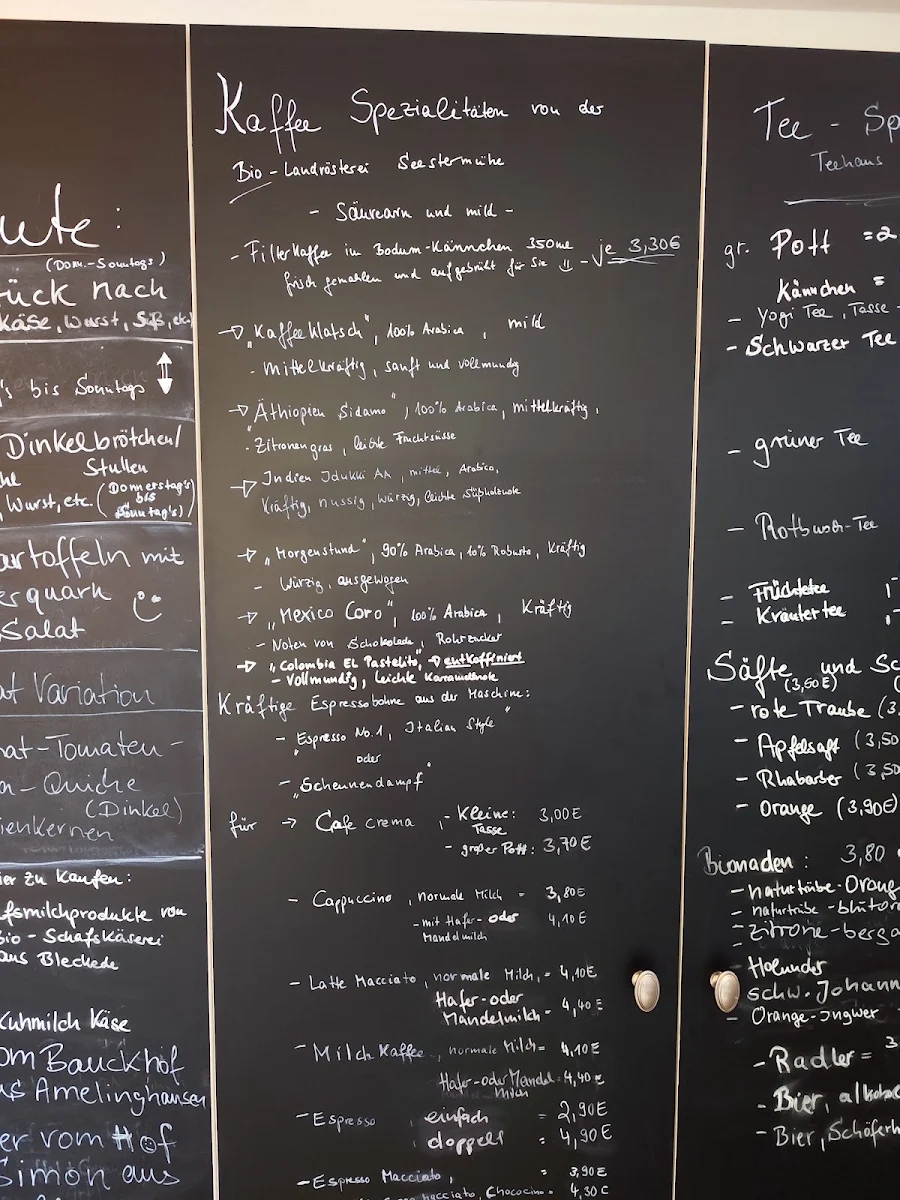 ute:
(Dom.-Sonntags)
ück nach
Käse, Wurst, Süß, etc.
's bis Sonntags
Dinkelbrötchen/
he Stullen
Wurst, etc. (Donnerstag's
bis
Sonntag's)
artoffeln mit
erquark
Salat
at Variation
nat-Tomaten-
a-Quiche
(Dinkel)
ienkernen
ier zu Kaufen:
fsmilchprodukte von
Bio-Schafskäserei
aus Bleckede
Kuhmilch Käse
om Bauckhof
us Amelinghausen
er vom Hof
Simon aus
Kaffee Spezialitäten von der
Bio-Landrösterei Seestermühe
- Säurearm und mild -
- Filterkaffee in Bodum-Kännchen 350ml - je 3,30€
frisch gemahlen und aufgebrüht für Sie
→ "Kaffeeklatsch", 100% Arabica, mild
- mittelkräftig, sanft und vollmundig
→ "Äthiopien Sidamo", 100% Arabica, mittelkräftig,
- Zitronengras, leichte Fruchtsüsse
→ Indien Idukki AA, mittel, Arabica,
kräftig, nussig, würzig, leichte Süßholznote
→ "Morgenstund", 90% Arabica, 10% Robusta, Kräftig
- Würzig, ausgewogen
→ "Mexico Coro", 100% Arabica, Kräftig
- Noten von Schokolade, Rohrzucker
→ "Colombia EL Pastelito", → entkoffiniert
- Vollmundig, leichte Karamellnote
Kräftige Espressobohne aus der Maschine:
- "Espresso No.1, Italian Style"
oder
- "Scheunendampf"
für → Cafe crema, - Kleine: 3,00€
Tasse
- großer Pott: 3,70€
- Cappuccino, normale Milch = 3,80€
- mit Hafer- oder 4,10€
Mandelmilch
- Latte Macciato, normale Milch, = 4,10€
Hafer- oder
Mandelmilch = 4,40€
- Milch Kaffee, normale Milch = 4,10€
Hafer- oder Mandel = 4,40€
milch
- Espresso, einfach = 2,90€
doppelt = 4,90€
- Espresso Macciato, = 3,90€
macciato, Chococino = 4,30€
Tee - Sp
Teehaus
gr. Pott = 2
Kännchen =
- Yogi Tee, Tasse -
- Schwarzer Tee
- grüner Tee
- Rotbusch-Tee
- Früchtetee
- Kräutertee
Säfte und Sc
(3,50€)
- rote Traube (3,
- Apfelsaft (3,50
- Rhabarber (3,50
- Orange (3,90€)
Bionaden: 3,80
- naturtrübe-Orang
- naturtrübe-blutora
- zitrone-berga
- Holunder
- schw. Johann
- Orange-Ingwer
- Radler = 3
- Bier, alkoho
- Bier, Schöferh